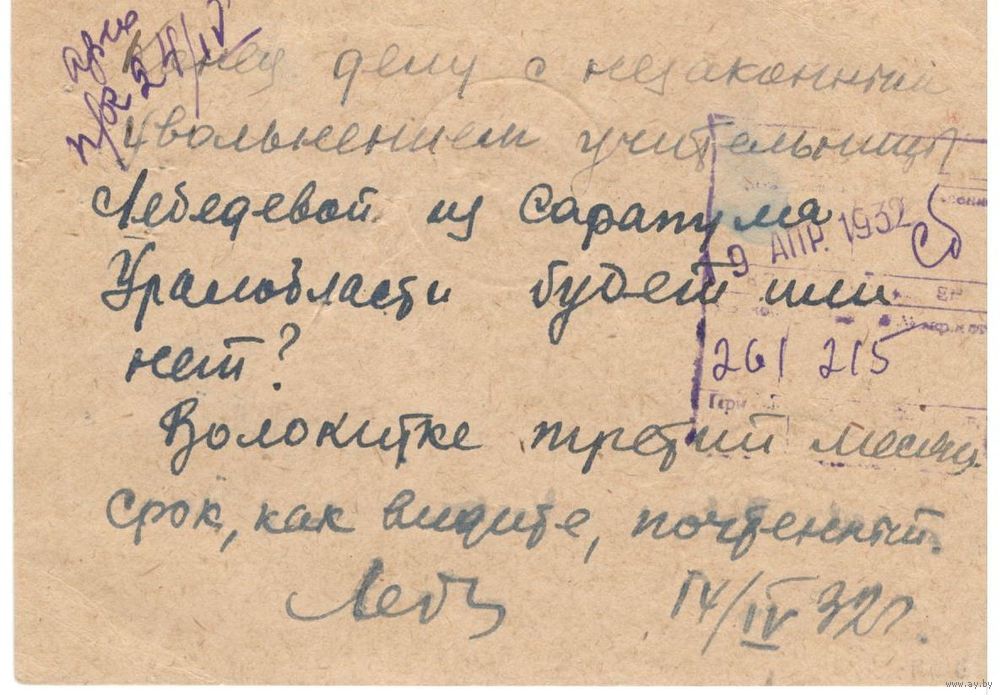 Конец делу с незаконным
увольнением учительницы
Лебедевой из Сарапула
Уралобласти будет или
нет?
Волоките третий месяц
срок, как видите, почтенный.
Леб
14/IV 32 г.
24/IV
9 АПР. 1932
261 215
www.ay.by